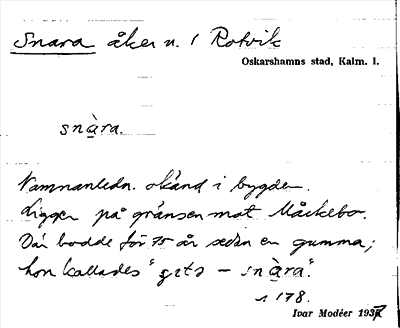 Snara åker n. i Rotvik
Oskarshamns stad, Kalm. l.
snàra.
Namnanledn. okänd i bygden.
Ligger på gränsen mot Måckebo.
Där bodde för 75 år sedan en gumma;
hon kallades "  – snàra".
s 178.
Ivar Modéer 1937